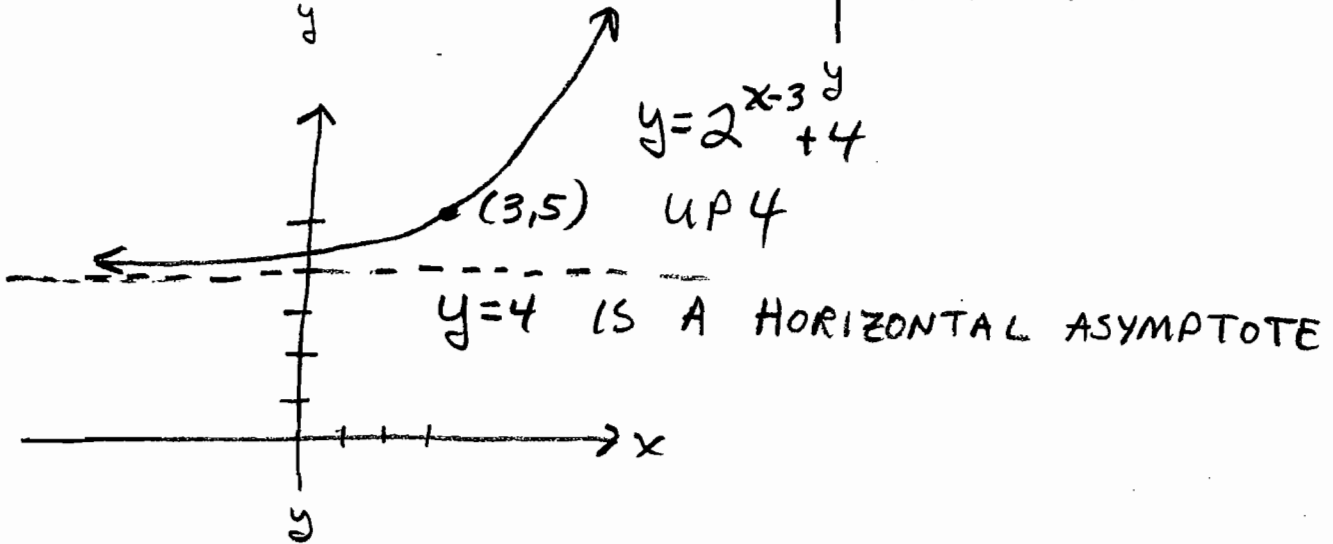 y
y
y=2^{x-3}+4
(3,5) UP 4
y=4 IS A HORIZONTAL ASYMPTOTE
x
y